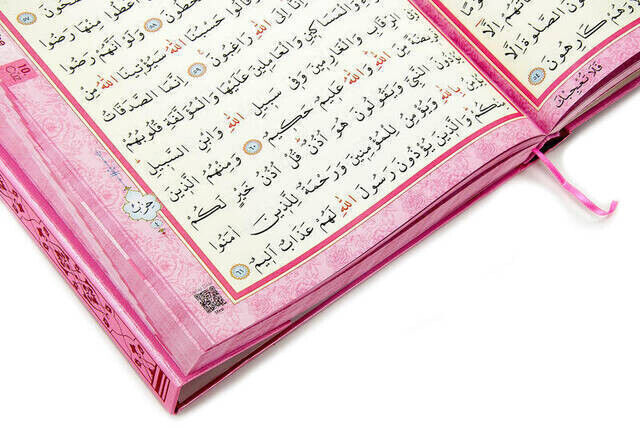 الصَّلٰوةَ اِلَّا
وَهُمْ كَارِهُونَ ٥٤
فَلَا تُعْجِبْكَ
اُعْطُوا مِنْهَا رَضُوا
وَلَوْ اَنَّهُمْ رَضُوا
وَقَالُوا حَسْبُنَا اللّٰهُ سَيُؤْتِينَا اللّٰهُ مِنْ
اللّٰهِ رَاغِبُونَ ٥٩ اِنَّمَا الصَّدَقَاتُ
وَالْمَسَاكِينِ وَالْعَامِلِينَ عَلَيْهَا وَالْمُؤَلَّفَةِ قُلُوبُهُمْ
الرِّقَابِ وَالْغَارِمِينَ وَفِي سَبِيلِ اللّٰهِ وَابْنِ السَّبِيلِ
فَرِيضَةً مِنَ اللّٰهِ وَاللّٰهُ عَلِيمٌ حَكِيمٌ ٦٠ وَمِنْهُمُ الَّذِينَ
يُؤْذُونَ النَّبِيَّ وَيَقُولُونَ هُوَ اُذُنٌ قُلْ اُذُنُ خَيْرٍ لَكُمْ
يُؤْمِنُ بِاللّٰهِ وَيُؤْمِنُ لِلْمُؤْمِنِينَ وَرَحْمَةٌ لِلَّذِينَ اٰمَنُوا
مِنْكُمْ وَالَّذِينَ يُؤْذُونَ رَسُولَ اللّٰهِ لَهُمْ عَذَابٌ اَلِيمٌ ٦١
10.
CÜZ